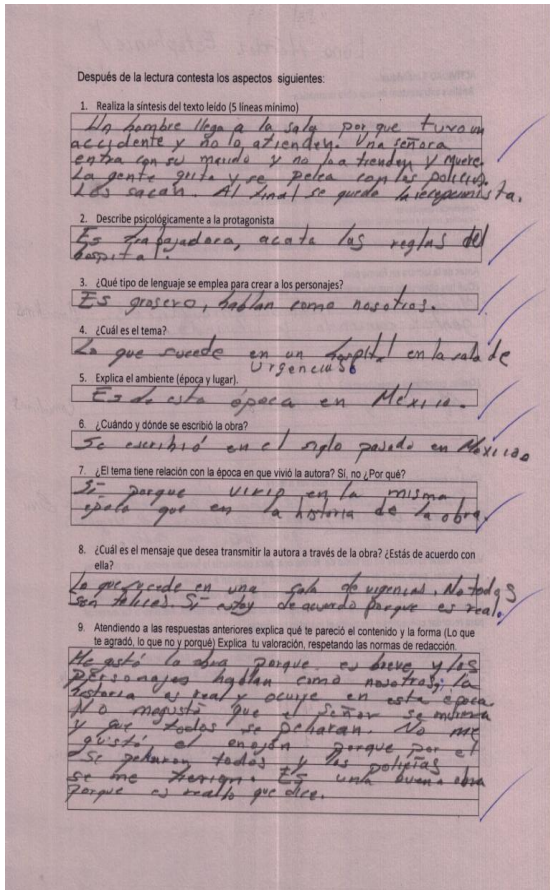 Después de la lectura contesta los aspectos siguientes:
1. Realiza la síntesis del texto leído (5 líneas mínimo)
Un hombre llega a la sala por que tuvo un
accidente y no lo atienden. Una señora
entra con su marido y no los atienden y muere.
La gente grita y se pelea con los policías.
Los sacan. Al final se queda la recepcionista.
2. Describe psicológicamente a la protagonista
Es trabajadora, acata las reglas del
hospital.
3. ¿Qué tipo de lenguaje se emplea para crear a los personajes?
Es grosero, hablan como nosotros.
4. ¿Cuál es el tema?
Lo que sucede en un hospital en la sala de
urgencias
5. Explica el ambiente (época y lugar).
Es de esta época en México.
6. ¿Cuándo y dónde se escribió la obra?
Se escribió en el siglo pasado en México
7. ¿El tema tiene relación con la época en que vivió la autora? Si, no ¿Por qué?
Si porque vivio en la misma
época que en la historia de la obra.
8. ¿Cuál es el mensaje que desea transmitir la autora a través de la obra? ¿Estás de acuerdo con
ella?
Lo que sucede en una sala de urgencias. No todas
son felices. Si estoy de acuerdo porque es real.
9. Atendiendo a las respuestas anteriores explica qué te pareció el contenido y la forma (Lo que
te agradó, lo que no y porqué) Explica tu valoración, respetando las normas de redacción.
Me gustó la obra porque es breve y los
personajes hablan como nosotros, la
historia es real y ocurre en esta época
No me gustó que el señor se muriera
y que todos se pelearan. No me
gustó el enojón porque por el
se pelearon todos y los policías
se me Es una buena obra
porque es real lo que dice.